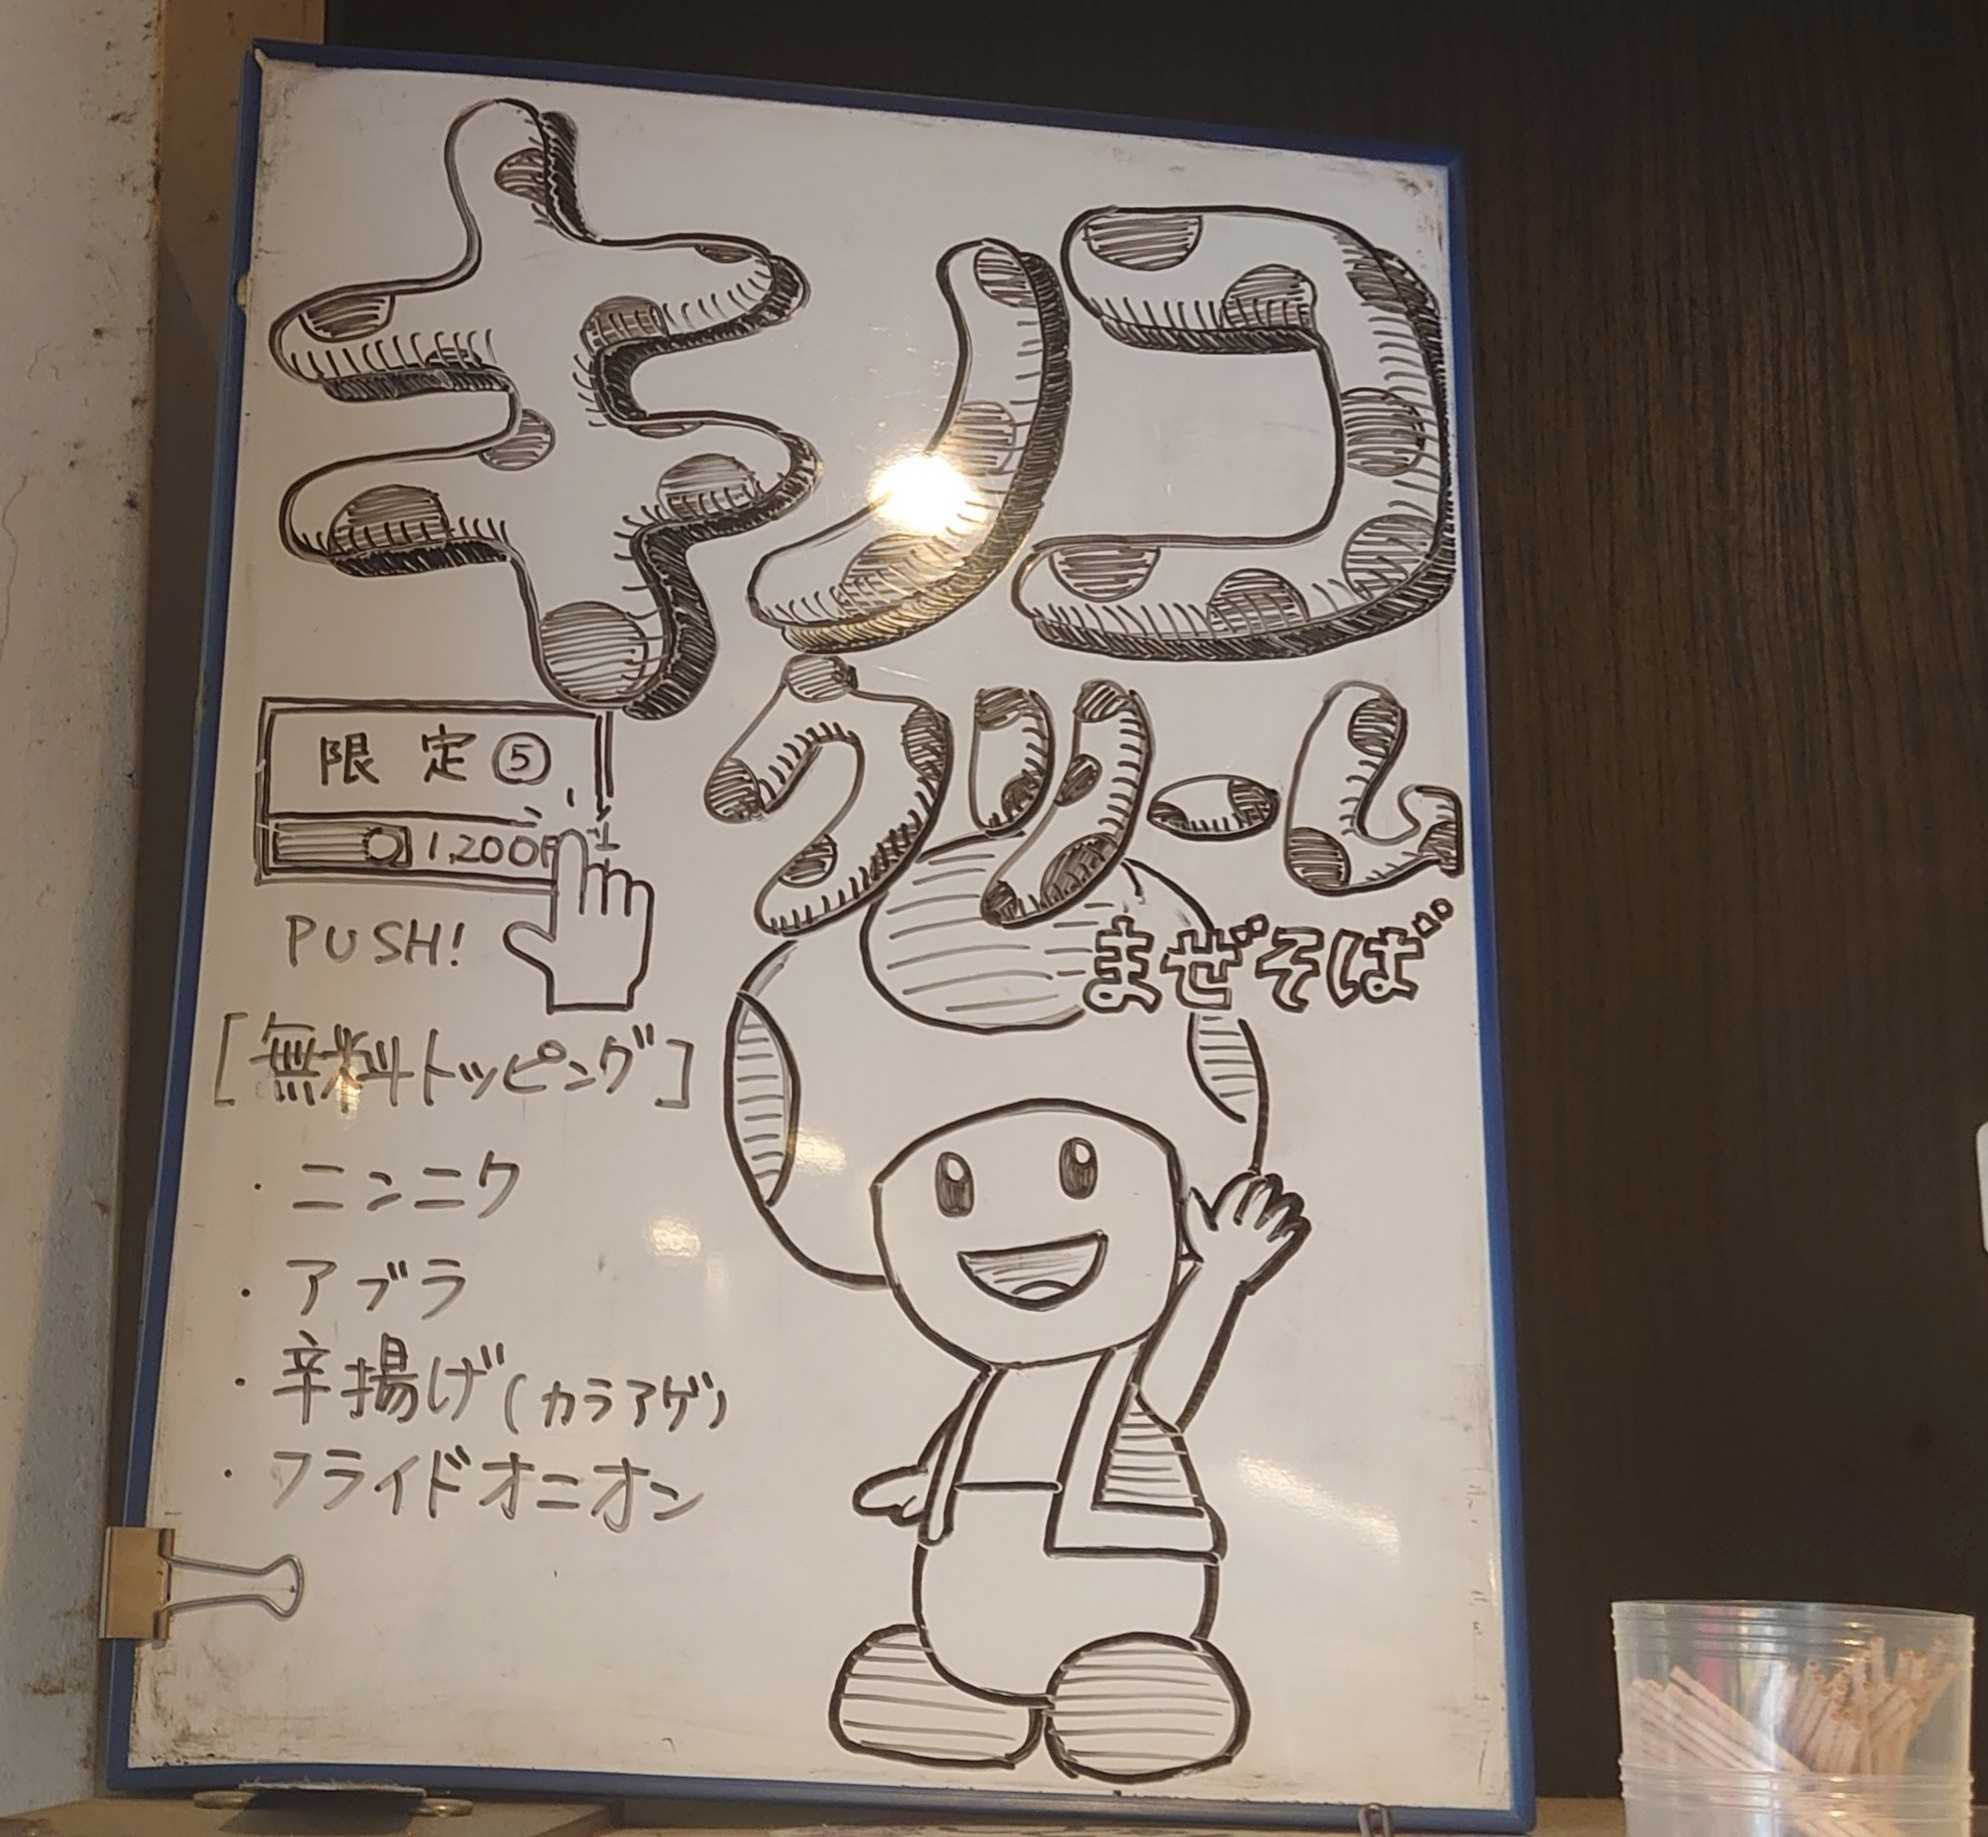 キノコ
クリーム
まぜそば
限定⑤
1,200円
PUSH!
[無料トッピング]
・ニンニク
・アブラ
・辛揚げ(カラアゲ)
・フライドオニオン